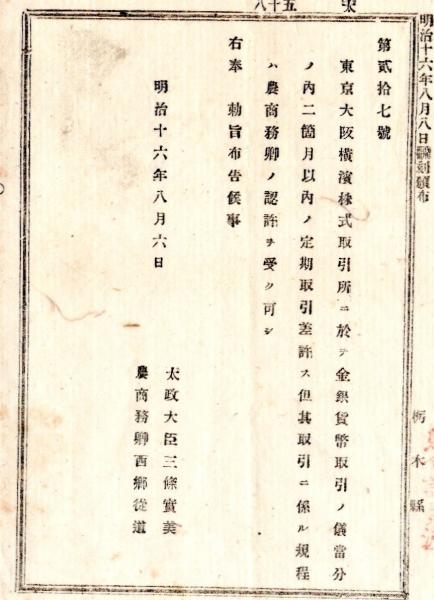 明治十六年八月八日翻刻頒布
栃木縣
太 五十八
第貳拾七號
東京大阪橫濱株式取引所ニ於テ金銀貨幣取引ノ儀當分
ノ內二箇月以內ノ定期取引差許ス但其取引ニ係ル規程
ハ農商務卿ノ認許ヲ受ク可シ
右奉　勅旨布告候事
明治十六年八月六日
太政大臣三條實美
農商務卿西鄕從道